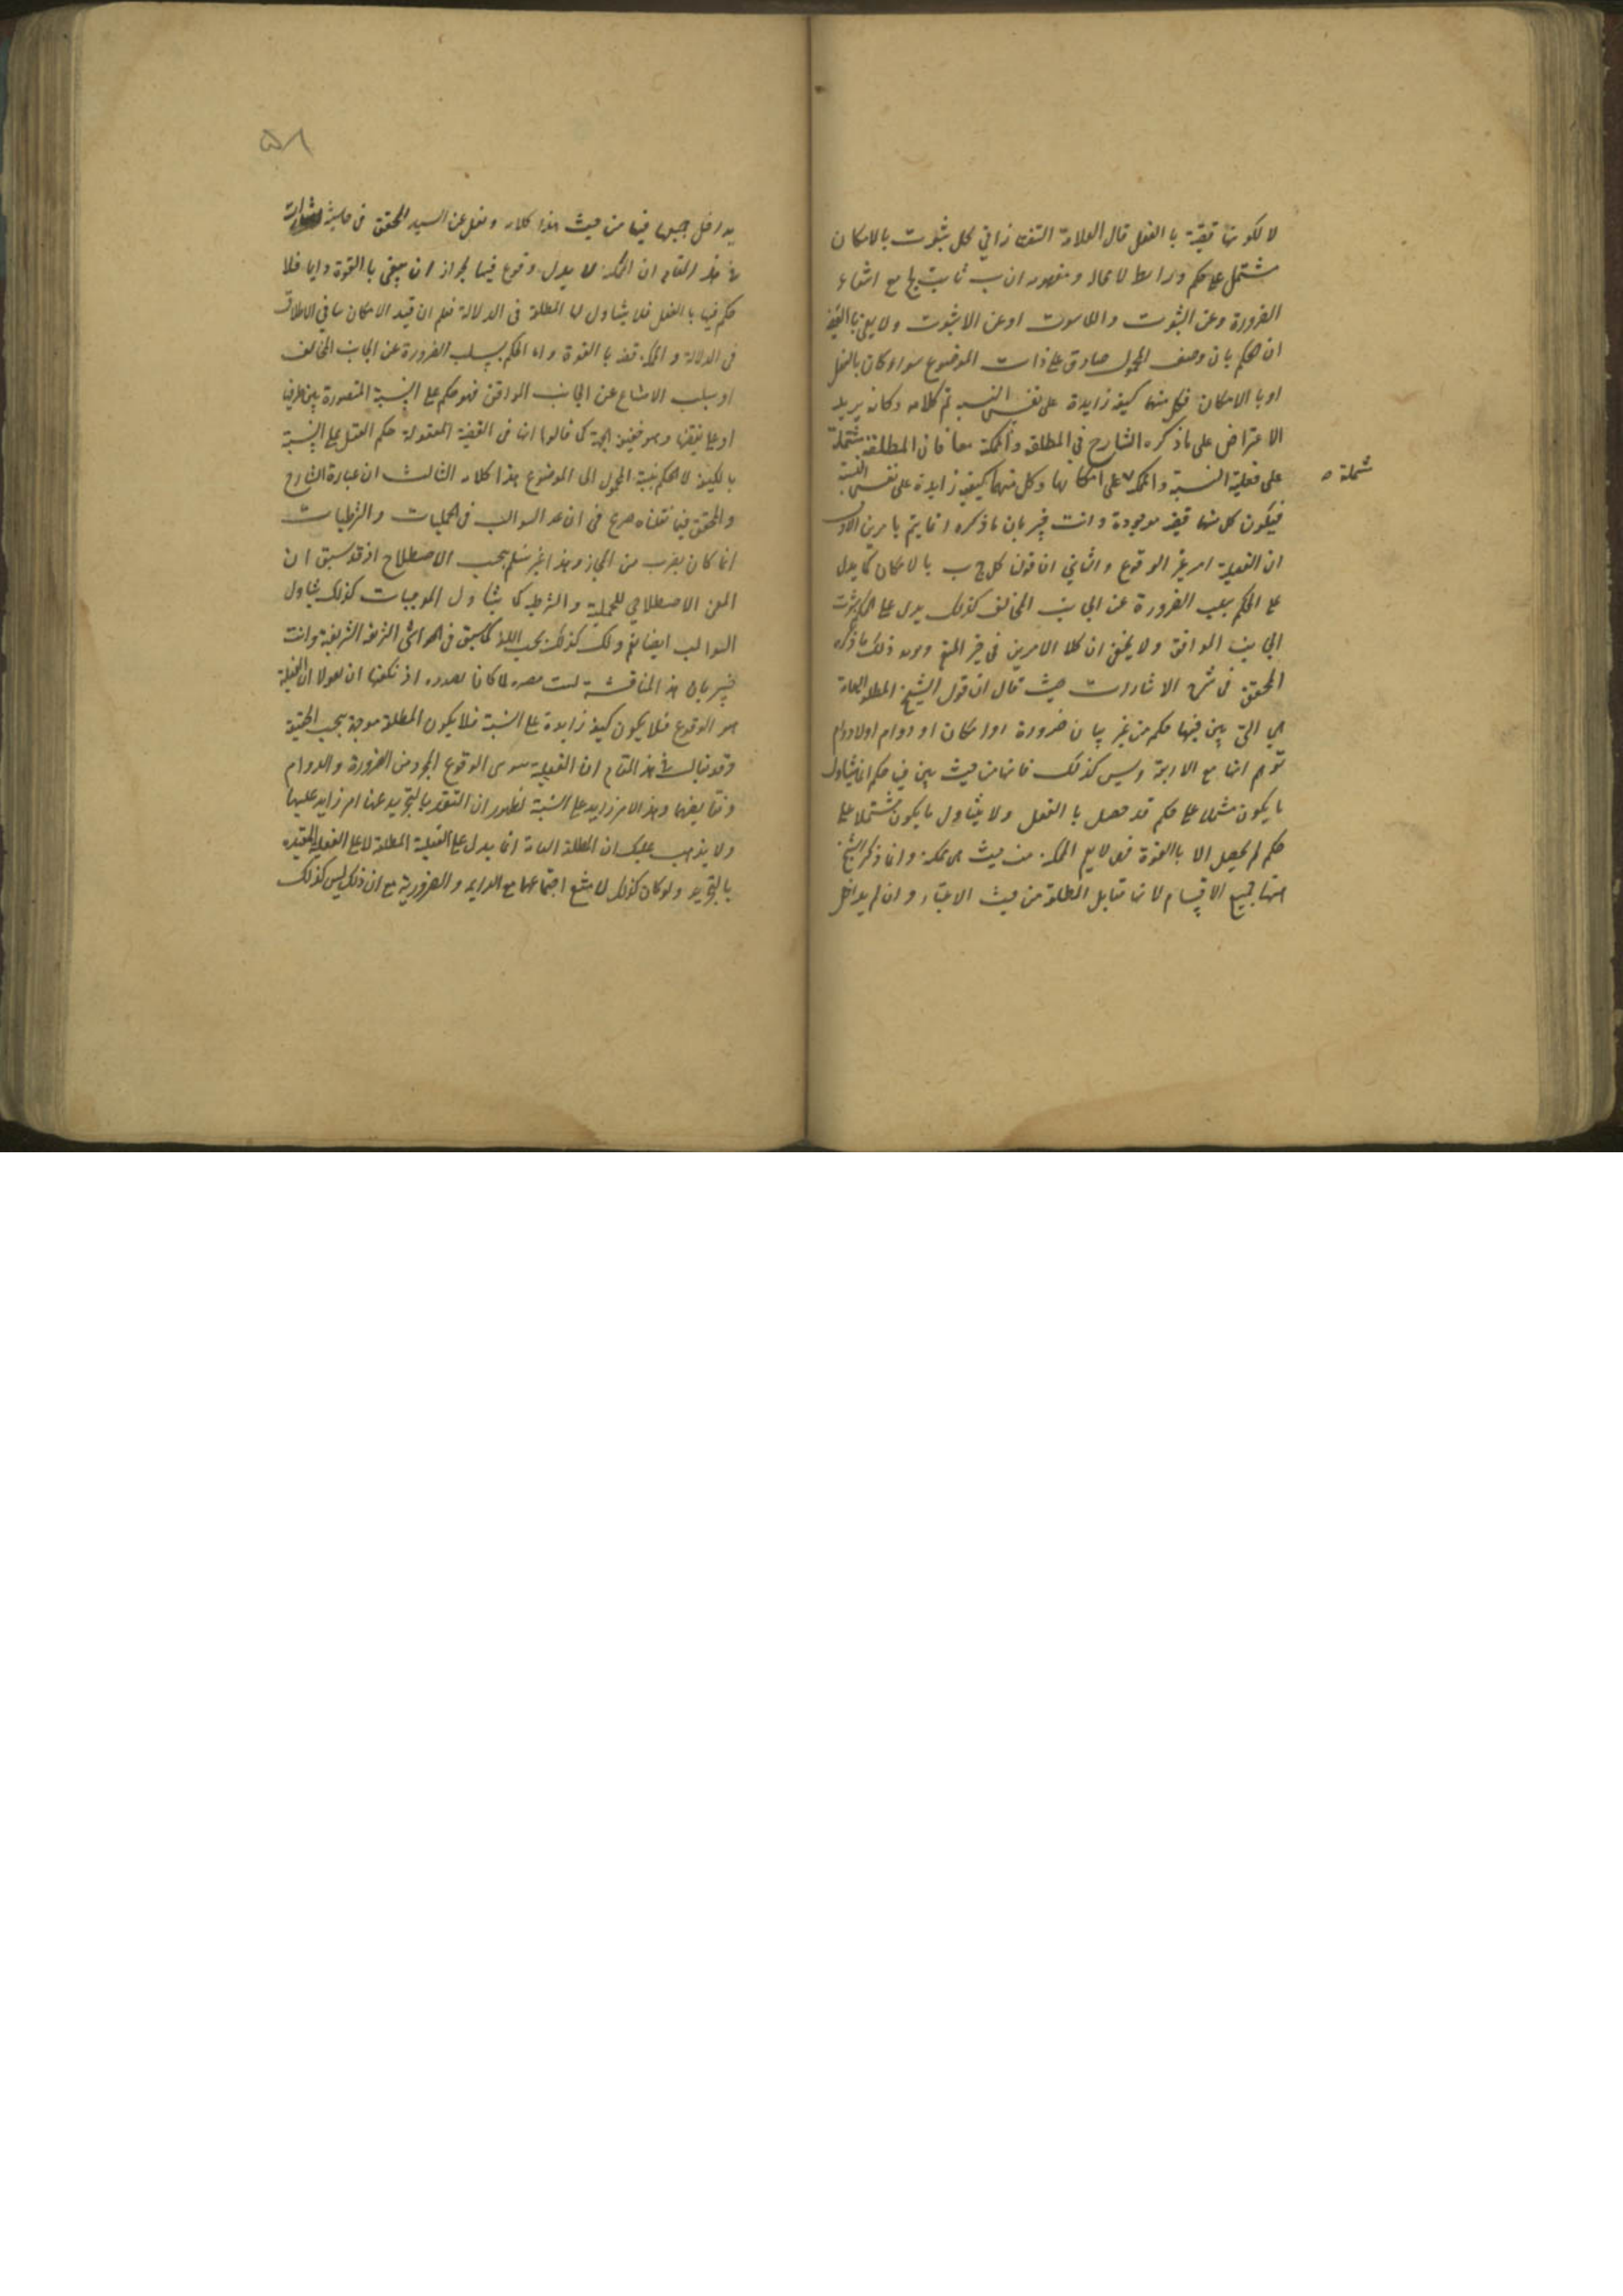 لا لكونها قضية با الفعل قال العلامة التفتازاني كل ثبوت بالامكان
مشتمل على حكم ورابط لا محالة ومفهومه ان ب ثابت لج مع انتفاء
الضرورة وعن الثبوت واللاثبوت او عن الاثبوت ولا يعني با القضية
ان الحكم بان وصف المحمول صادق على ذات الموضوع سواء كان بالفعل
او با الامكان فكل منهما كيفية زايدة على نفس النسبة تم كلامه وكانه يريد
الاعتراض على ما ذكره الشارح في المطلقة والممكنة معا فان المطلقة مشتملة
على فعلية النسبة والممكنة على امكانها وكل منهما كيفية زايدة على نفس النسبة
مشتملة
فيكون كل منها قضية موجودة وانت خبير بان ما ذكره انما يتم بامرين الاول
ان الفعلية امر غير الوقوع والثاني ان قولنا كل ج ب با لامكان كما يدل
على الحكم بسلب الضرورة عن الجانب المخالف كذلك يدل على الحكم بثبوت
الجانب الموافق ولا يخفى ان كلا الامرين في حيز المنع ذلك ما ذكره
المحقق في شرح الاشارات حيث قال ان قول الشيخ المطلقة العامة
هي التي بين فيها حكم من غير بيان ضرورة او امكان او دوام او لا دوام
توهم انها مع الاربعة وليس كذلك فانها من حيث بين فيها حكم انما يتناول
ما يكون مشتملا على حكم قد حصل با الفعل ولا يتناول ما يكون مشتملا على
حكم لم يحصل الا با القوة فهي لا يعم الممكنة من حيث هي ممكنة وانما ذكر الشيخ
انتهاء جميع الاقسام لانها تقابل المطلقة من حيث الاعتبار وان لم يداخل
٥٨
يداخل جميعها فيها من حيث هذا كلامه ونقل عن السيد المحقق في حاشية
في هذا المقام ان الممكنة لا يدل وقوع فيها لجواز ان يبقى با القوة دايما فلا
حكم فيها با الفعل فلا يتناول لها المطلقة في الدلالة فعلم ان قيد الامكان ينافي الاطلاق
في الدلالة والممكنة قضية با القوة واما الحكم بسلب الضرورة عن الجانب المخالف
او سلب الامتناع عن الجانب الموافق فهو حكم على النسبة المتصورة بين طرفيها
او على نقيضها وهو حقيقة الجهة كما قالوا ان في القضية المعقولة حكم العقل على النسبة
بالكيفية لا الحكم بنسبة المحمول الى الموضوع هذا كلامه الثالث ان عبارة الشارح
والمحقق فيما نقلناه صريح في ان عد السوالب في الحمليات والشرطيات
انما كان بضرب من المجاز وهذا غير مسلم بحسب الاصطلاح اذ قد سبق ان
المعنى الاصطلاحي للحملية والشرطية كما يتناول الموجبات كذلك يتناول
السوالب ايضا نعم ولك كذلك بحسب اللغة كما سبق في الحواشي الشريفة وانت
خبير بان هذه المناقشة ليست لما كانا بصدده اذ يكفيهما ان يقولا ان الفعلية
هو الوقوع فلا يكون كيفية زايدة على النسبة فلا يكون المطلقة موجهة بحسب الحقيقة
وقد يقال في هذا المقام ان الفعلية سوى الوقوع المجرد من الضرورة والدوام
ونقايضها وهذا الامر زايد على النسبة لظهور ان التقيد بالتجريد عنها امر زايد عليها
ولا يذهب عليك ان المطلقة العامة انما يدل على الفعلية المطلقة لا على الفعلية المقيدة
بالتجريد ولو كان كذلك لامتنع اجتماعها مع الدايمة والضرورية مع ان ذلك ليس كذلك